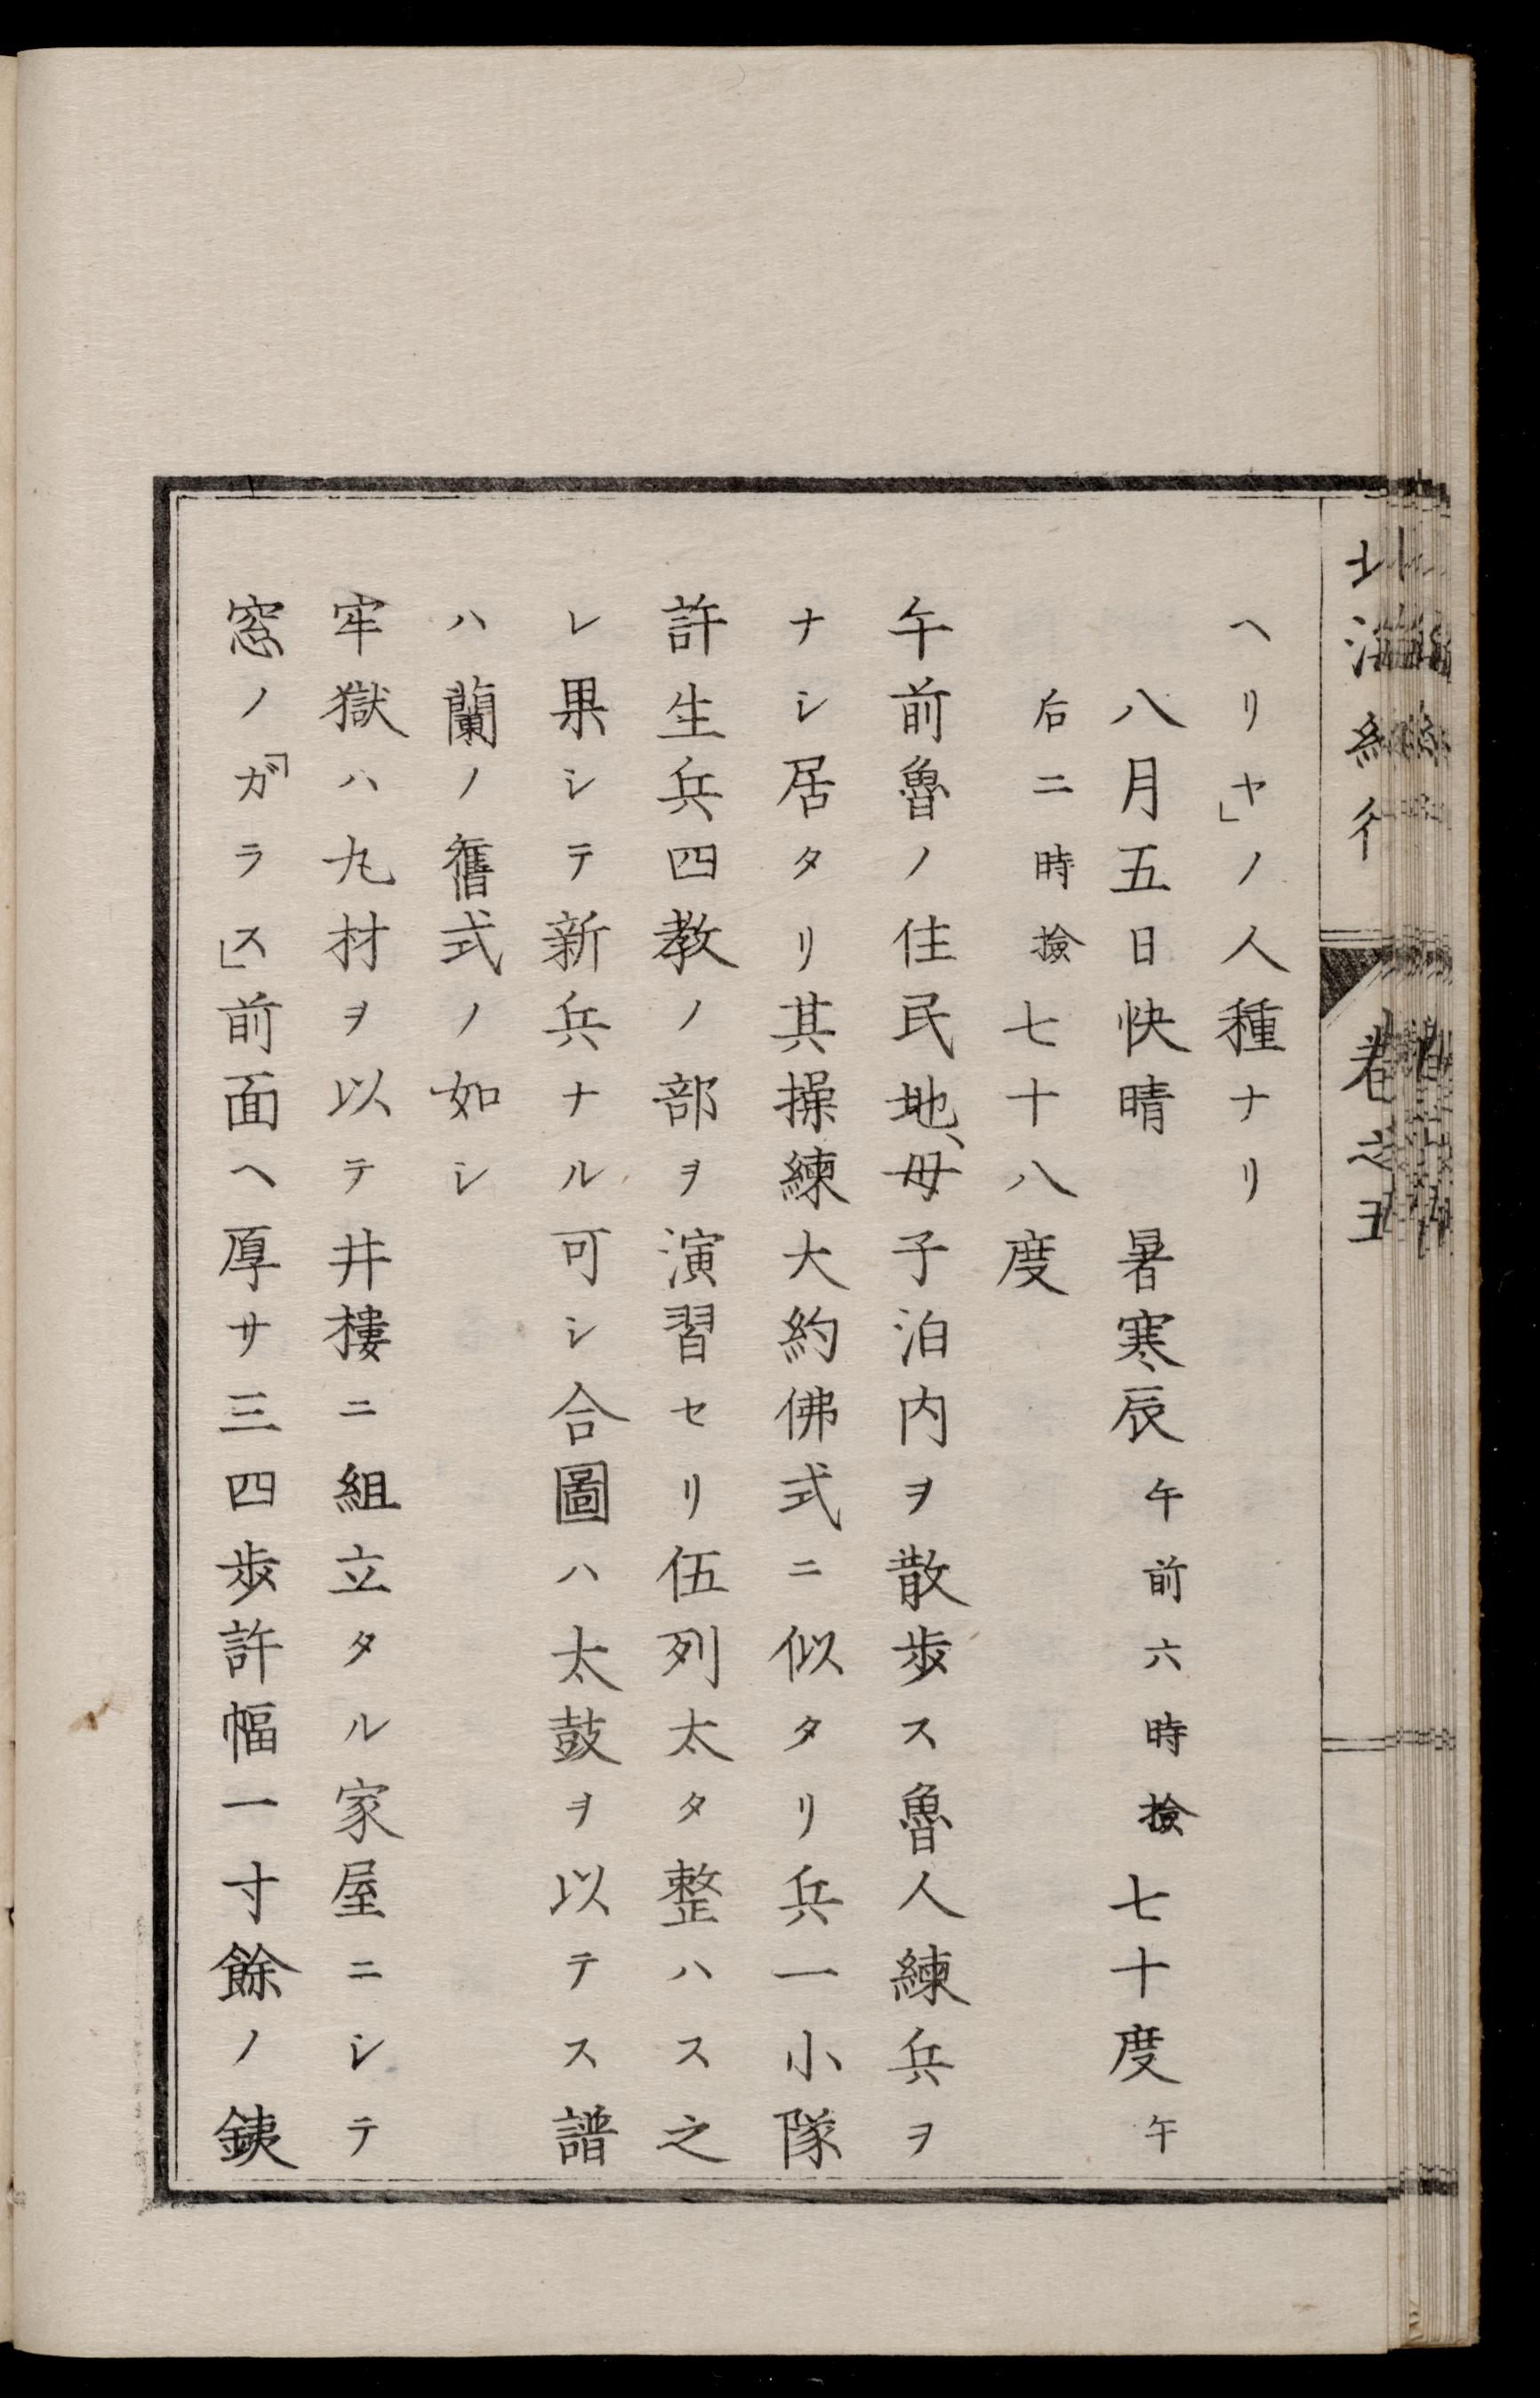 ヘリヤ」ノ人種ナリ
八月五日快晴　暑寒辰午前六時撿七十度午
后二時撿七十八度
午前魯ノ住民地、母子泊内ヲ散歩ス魯人練兵ヲ
ナシ居タリ其操練大約佛式ニ似タリ兵一小隊
許生兵四教ノ部ヲ演習セリ伍列太タ整ハス之
レ果シテ新兵ナル可シ合圖ハ太鼓ヲ以テス譜
ハ蘭ノ舊式ノ如シ
牢獄ハ丸材ヲ以テ井樓ニ組立タル家屋ニシテ
窓ノ「ガラス」前面ヘ厚サ三四歩許幅一寸餘ノ銕